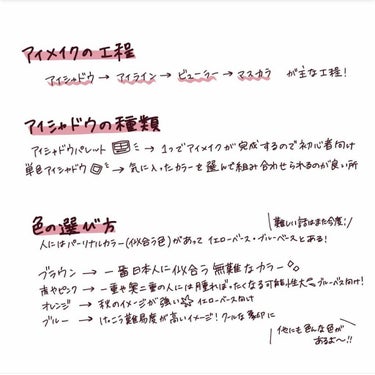 アイメイクの工程
アイシャドウ → アイライン → ビューラー → マスカラ が主な工程!
アイシャドウの種類
アイシャドウパレット → 1つでアイメイクが完成するので初心者向け
単色アイシャドウ → 気に入ったカラーを選んで組み合わせられるのが良い所
色の選び方
\難しい話はまた今度!/
人にはパーソナルカラー(似合う色)があって イエローベース・ブルーベースとある!
ブラウン → 一番日本人に似合う無難なカラー
赤やピンク → 一重や奥二重の人には腫れぼったくなる可能性大 ブルーベース向け!
オレンジ → 秋のイメージが強い イエローベース向け
ブルー → けっこう難易度が高いイメージ! クールな印象に
\他にも色んな色が
あるよ〜!!/